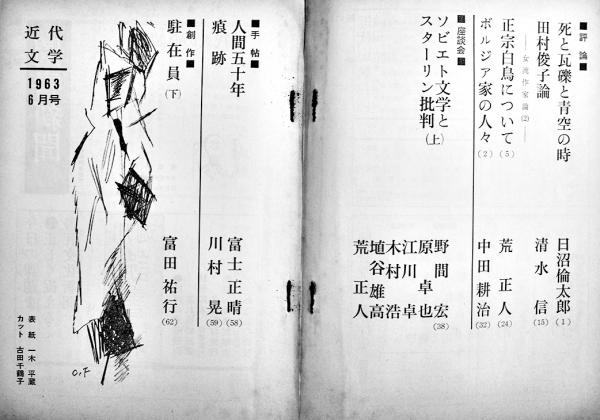 ■評論■
死と瓦礫と青空の時 日沼倫太郎(1)
田村俊子論 清水信(15)
——女流作家論(2)——
正宗白鳥について(5) 荒正人(24)
ボルジア家の人々(2) 中田耕治(32)
■座談会■
ソビエト文学と
スターリン批判(上)
野間宏(38)
原卓也
江川卓
木村浩
埴谷雄高
荒正人
■手帖■
人間五十年 富士正晴(58)
痕跡 川村晃(59)
■創作■
駐在員(下) 富田祐行(62)
近代
文学
1963
6月号
O.F
表紙 一木平蔵
カット 古田千鶴子